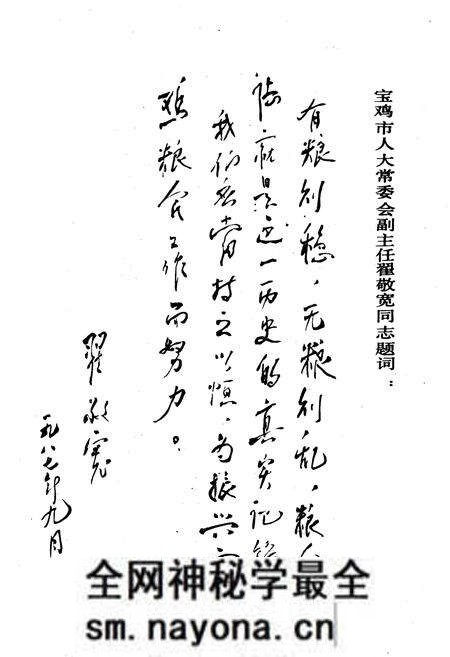 宝鸡市人大常委会副主任翟敬宽同志题词：
有粮则稳，无粮则乱，粮食
志就是这一历史的真实记
我们应当持之以恒，为振兴
鸡粮食工作而努力。
翟敬宽
一九八七年九月
全网神秘学最全
sm.nayona.cn